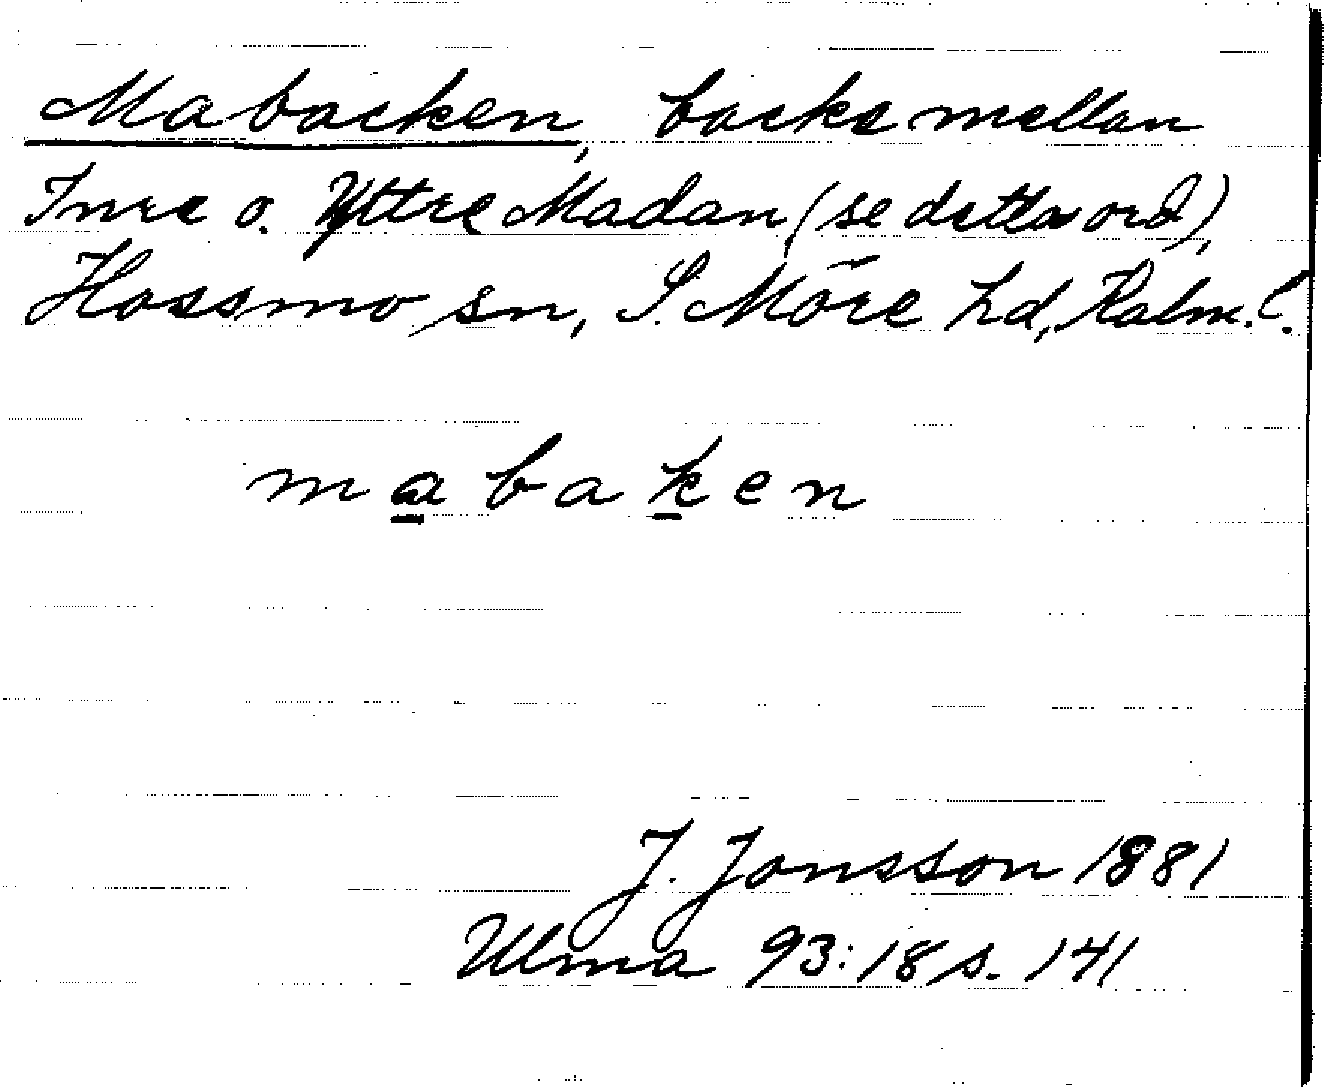 Mabacken, backe mellan
Inre o. Yttre Madan (se detta ord),
Hossmo sn, S. Möre hd, Kalm. l.
mabaken
J. Jonsson 1881
Ulma 93:18 s. 141